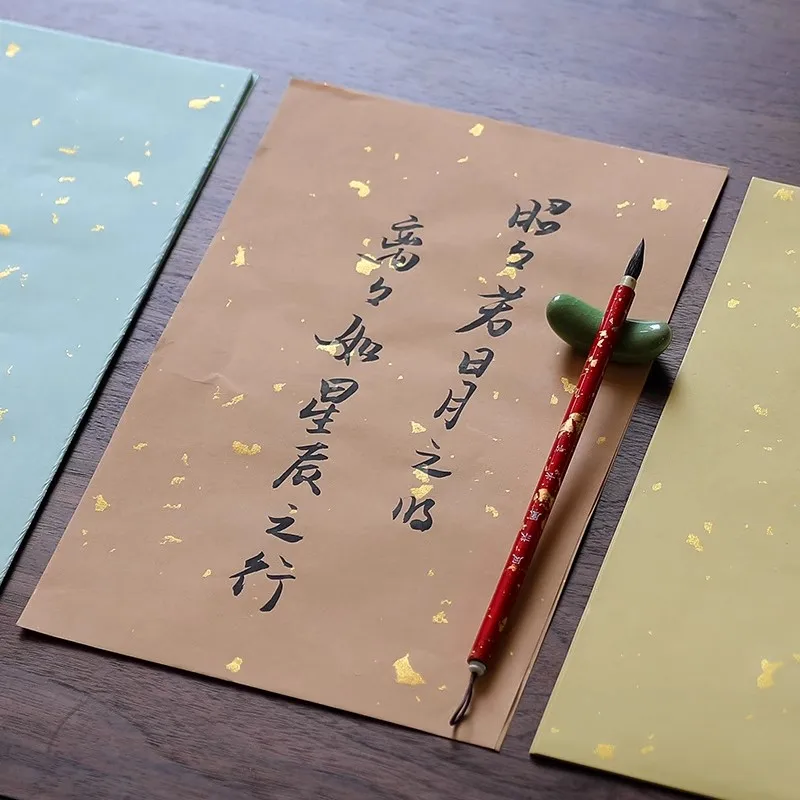 昭々若日月之明
离々如星辰之行